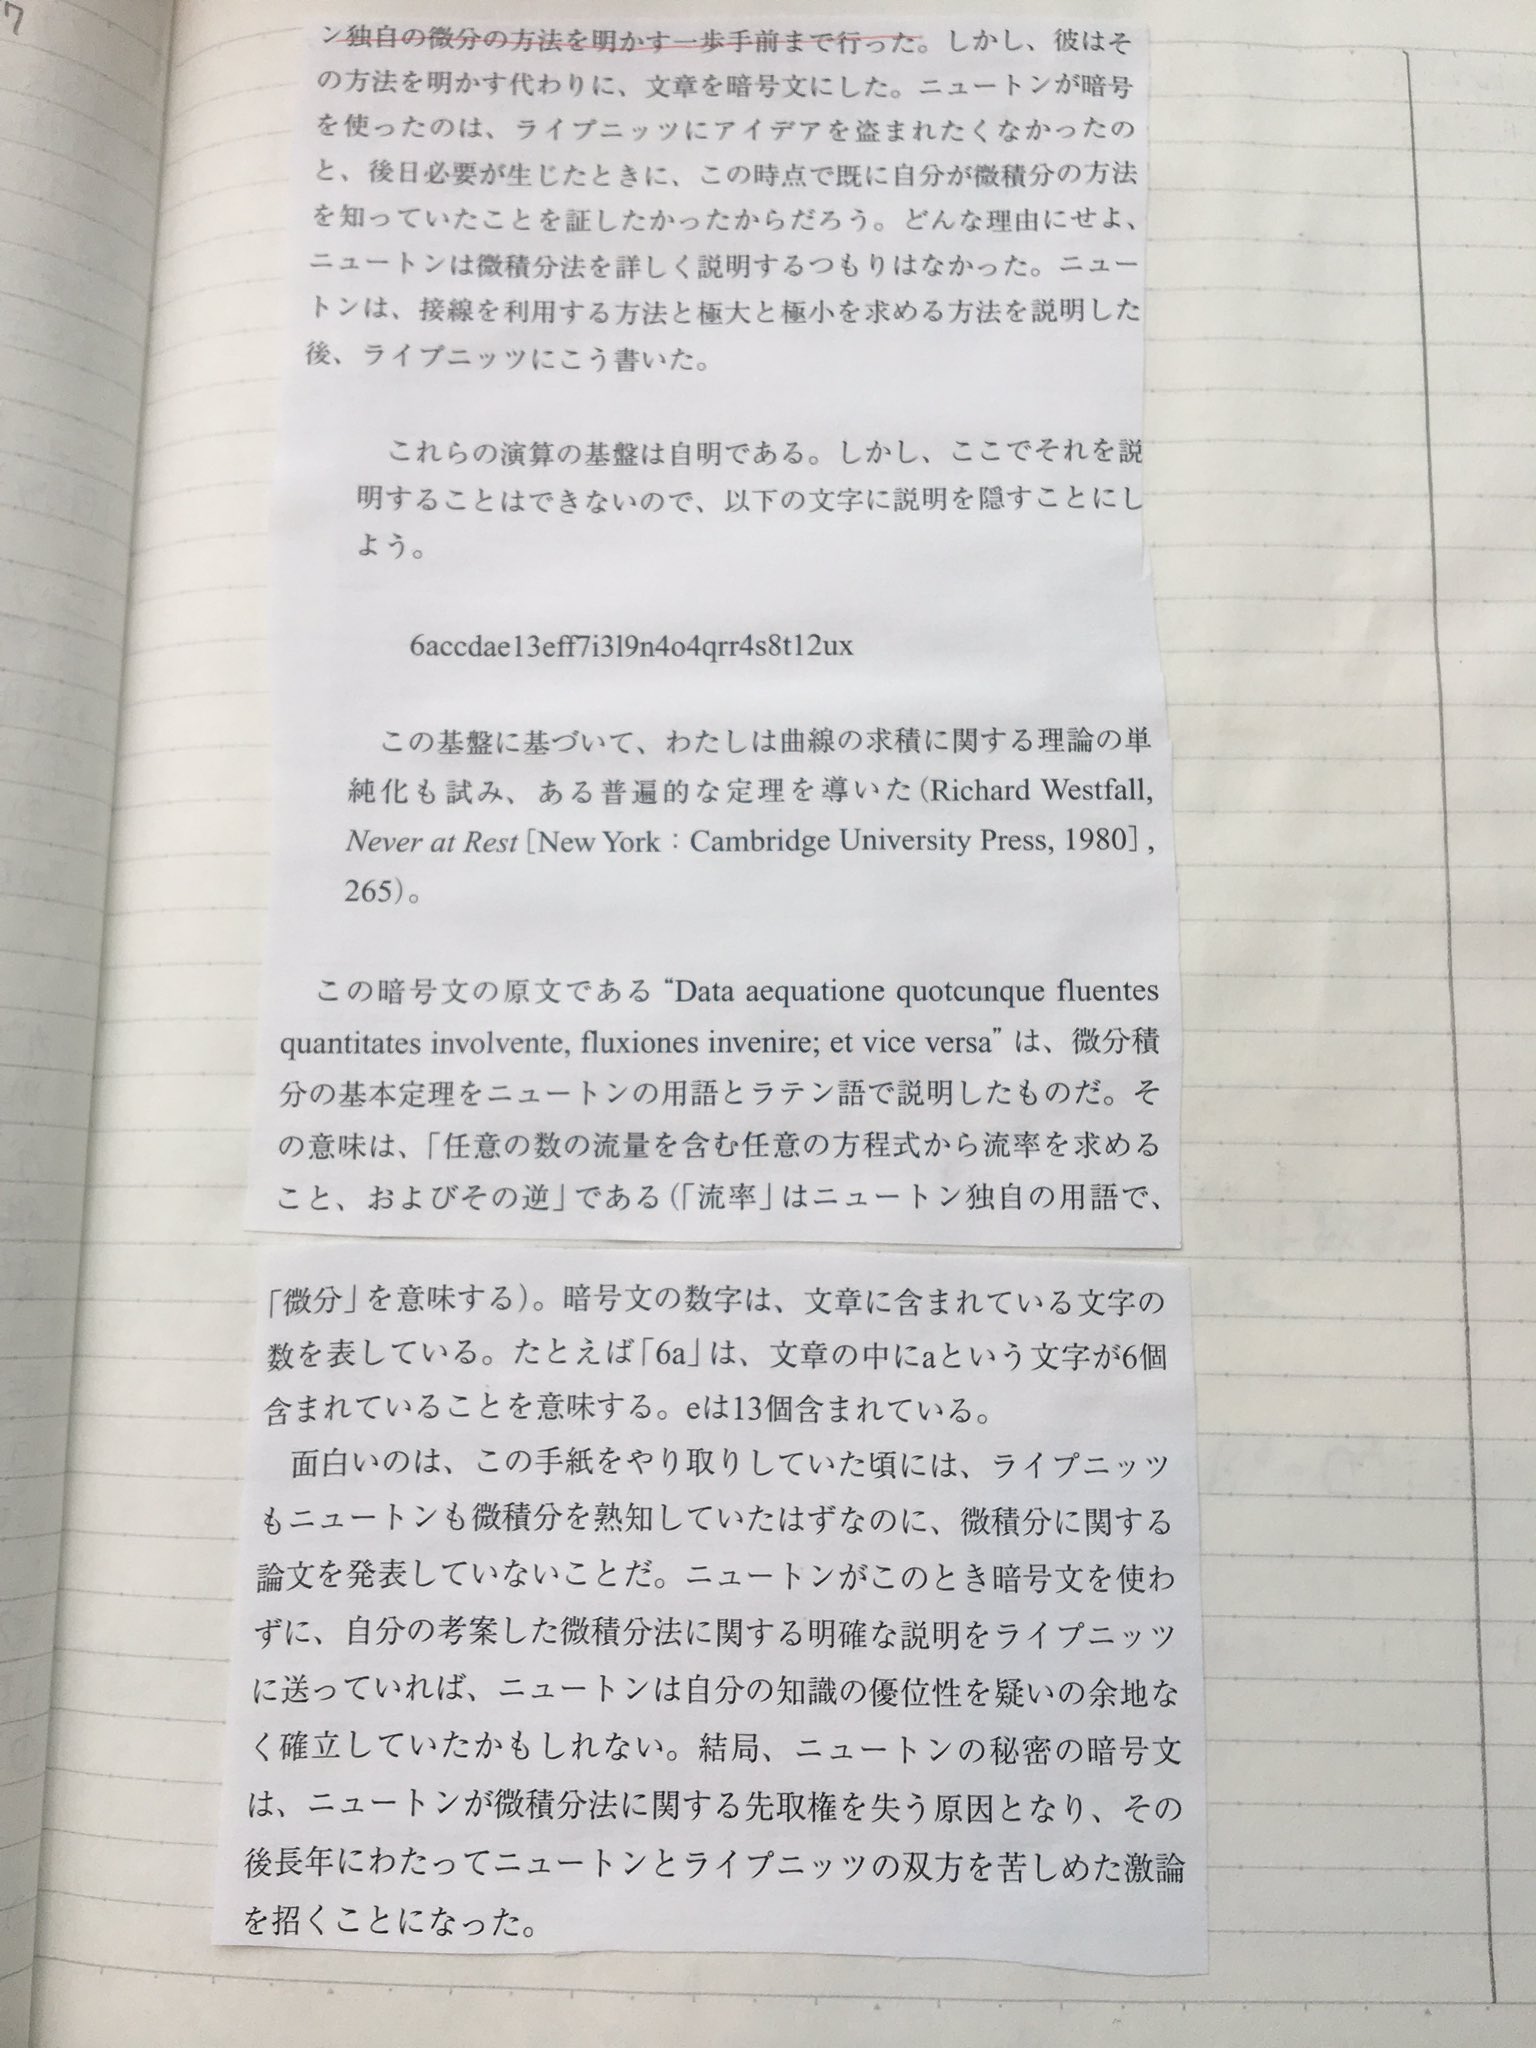 7
ン独自の微分の方法を明かす一歩手前まで行った。しかし、彼はそ
の方法を明かす代わりに、文章を暗号文にした。ニュートンが暗号
を使ったのは、ライプニッツにアイデアを盗まれたくなかったの
と、後日必要が生じたときに、この時点で既に自分が微積分の方法
を知っていたことを証したかったからだろう。どんな理由にせよ、
ニュートンは微積分法を詳しく説明するつもりはなかった。ニュー
トンは、接線を利用する方法と極大と極小を求める方法を説明した
後、ライプニッツにこう書いた。
これらの演算の基盤は自明である。しかし、ここでそれを説
明することはできないので、以下の文字に説明を隠すことにし
よう。
6accdae13eff7i3l9n4o4qrr4s8t12ux
この基盤に基づいて、わたしは曲線の求積に関する理論の単
純化も試み、ある普遍的な定理を導いた(Richard Westfall,
Never at Rest[New York：Cambridge University Press, 1980],
265)。
この暗号文の原文である“Data aequatione quotcunque fluentes
quantitates involvente, fluxiones invenire; et vice versa”は、微分積
分の基本定理をニュートンの用語とラテン語で説明したものだ。そ
の意味は、「任意の数の流量を含む任意の方程式から流率を求める
こと、およびその逆」である(「流率」はニュートン独自の用語で、
「微分」を意味する)。暗号文の数字は、文章に含まれている文字の
数を表している。たとえば「6a」は、文章の中にaという文字が6個
含まれていることを意味する。eは13個含まれている。
面白いのは、この手紙をやり取りしていた頃には、ライプニッツ
もニュートンも微積分を熟知していたはずなのに、微積分に関する
論文を発表していないことだ。ニュートンがこのとき暗号文を使わ
ずに、自分の考案した微積分法に関する明確な説明をライプニッツ
に送っていれば、ニュートンは自分の知識の優位性を疑いの余地な
く確立していたかもしれない。結局、ニュートンの秘密の暗号文
は、ニュートンが微積分法に関する先取権を失う原因となり、その
後長年にわたってニュートンとライプニッツの双方を苦しめた激論
を招くことになった。